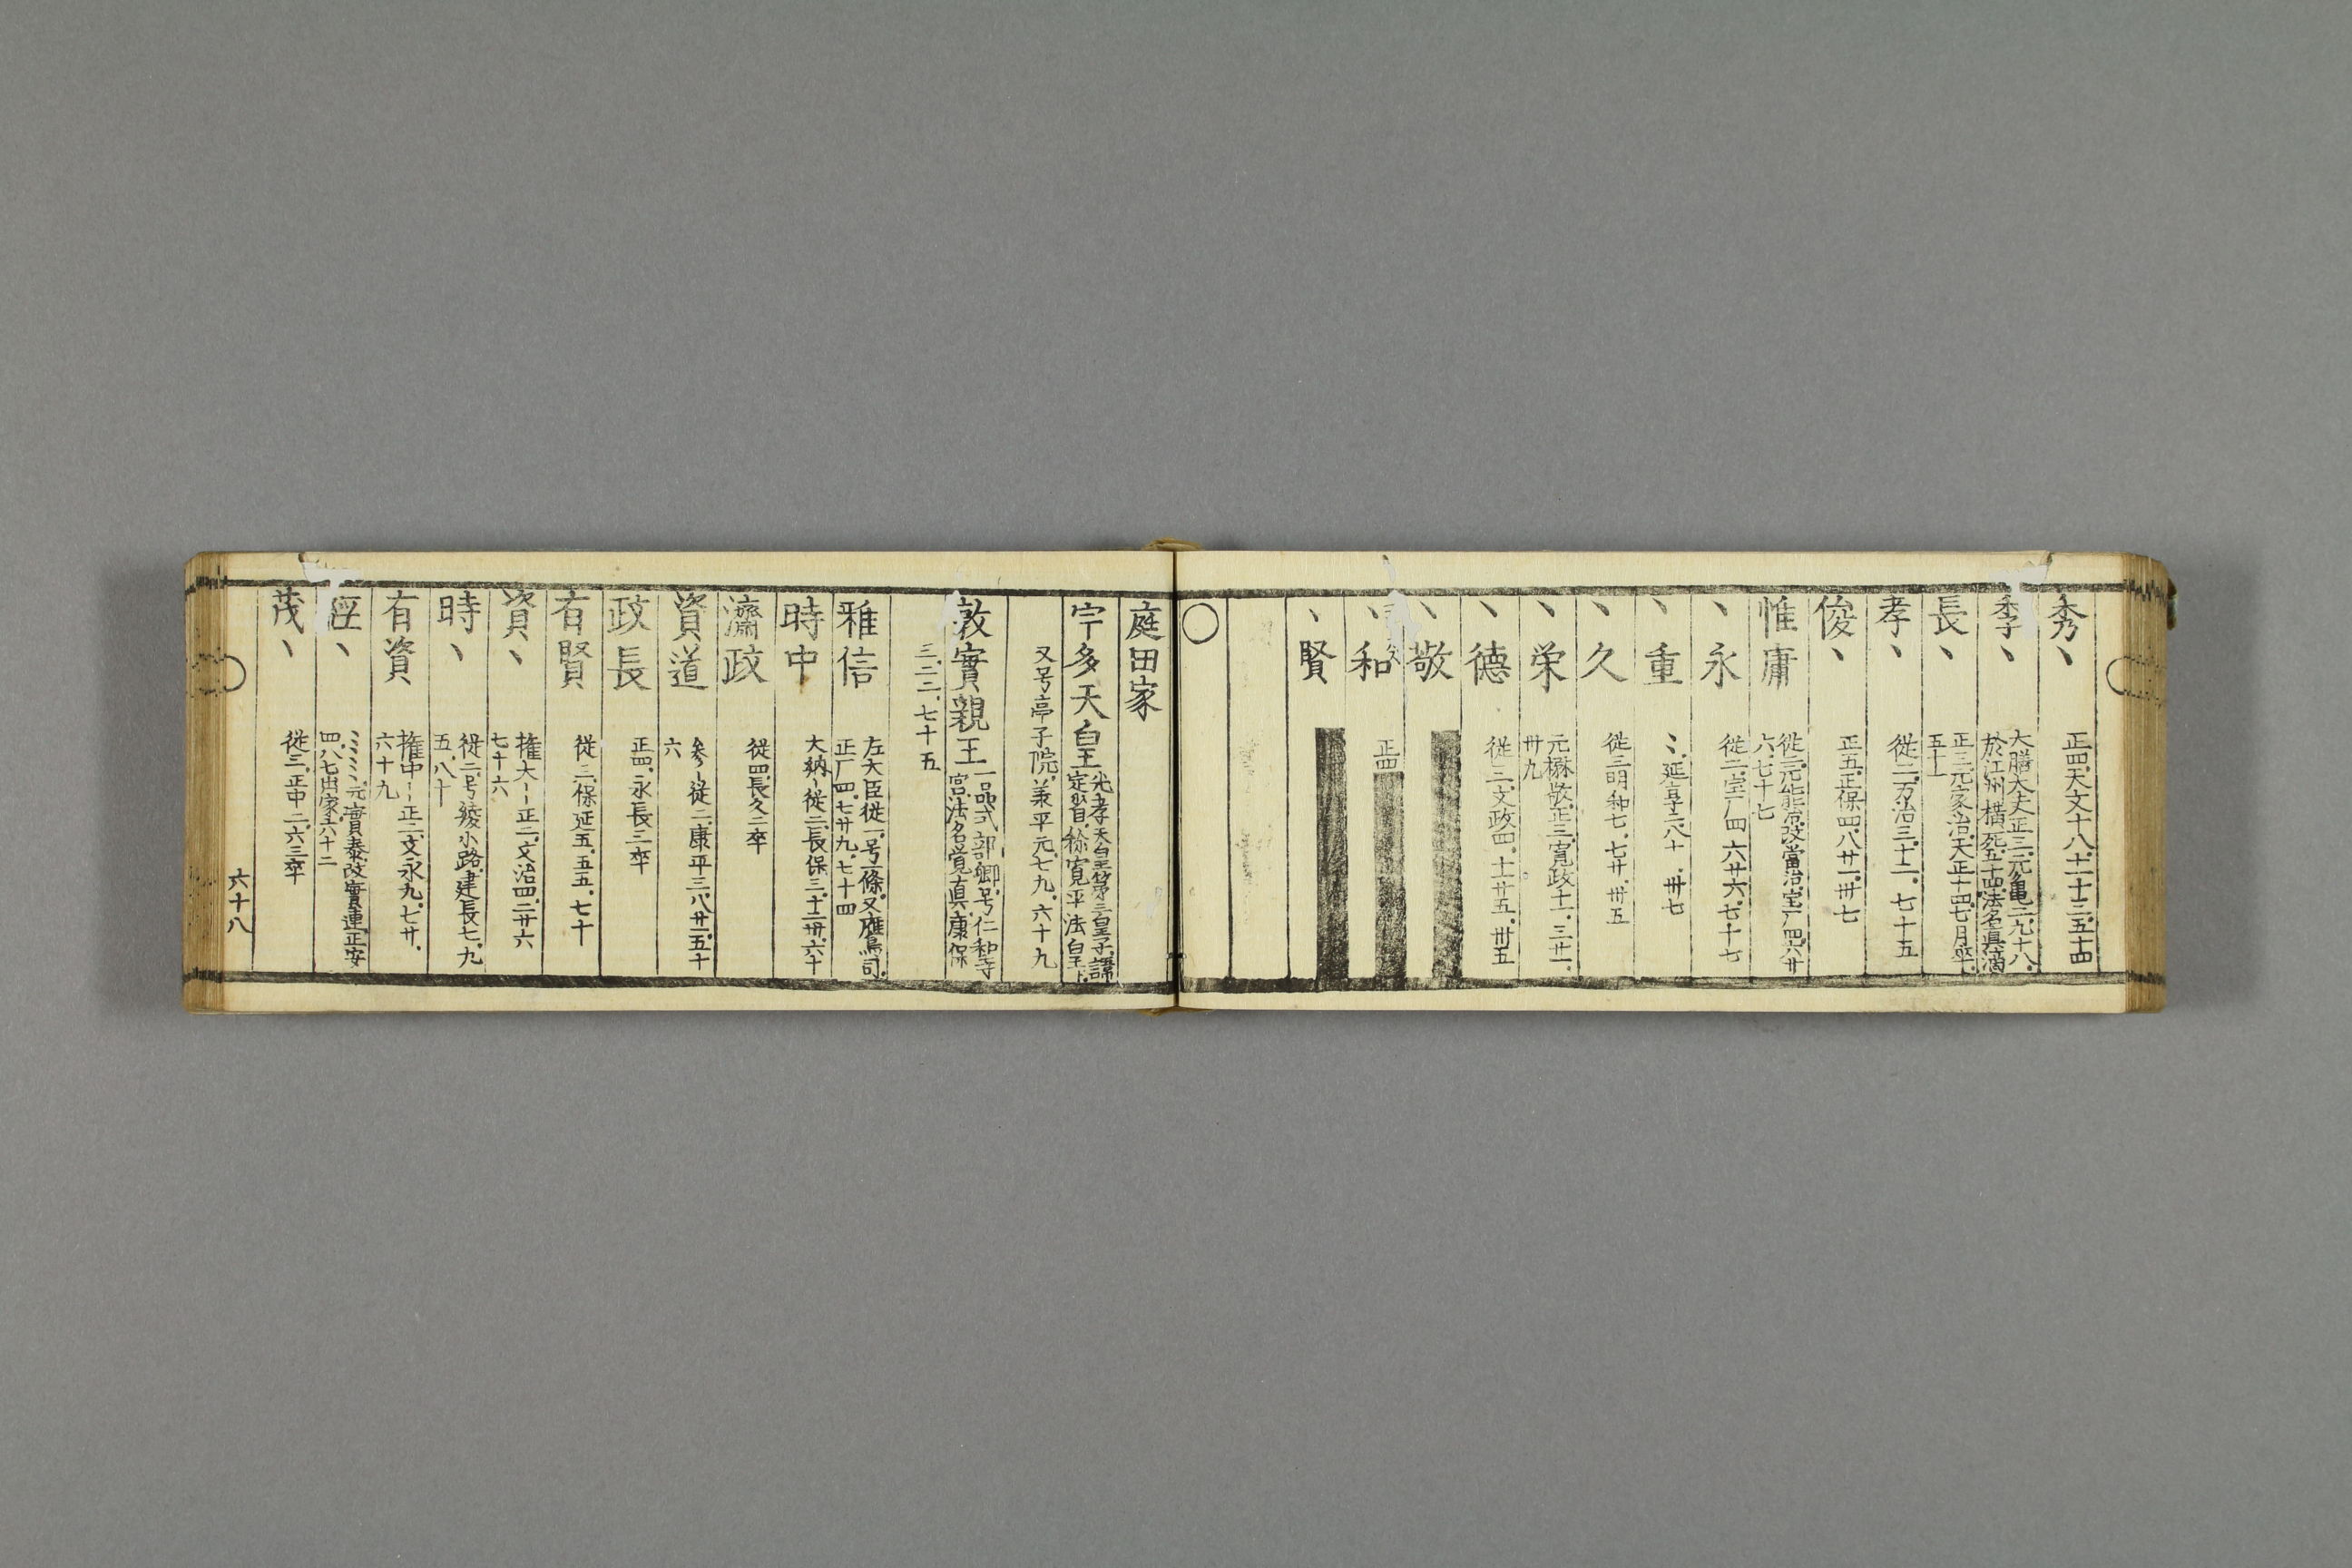 秀丶 正四.天文十八.十一.十三.五十四
季丶 大膳大夫正三.元亀二.九.十八.
於江州横死五十四.法名真滴
長丶 正三.元家治.天正十四.七月卒.
五十一
孝丶 従二.万治三.十二.七十五
俊丶 正五.正保四.八.廿一.卅七
惟庸 従二.元能治.改當治.宝厂四.六.廿
六.七十七
丶永 従二.宝厂四.六廿六.七十七
丶重 〻.延享二.八.十.卅七
丶久 従三.明和七.七廿.卅五
丶栄 元楙敬.正三.寛政十一.三廿一.
卅九
丶徳 従三.文政四.十一廿五.卅五
丶敬
丶和 正四
丶賢
○
庭田家
宇多天皇 光孝天皇第三皇子.諱
定省.称寛平法皇.
又号亭子院.兼平元.七九.六十九
敦實親王 一品式部卿.号仁和寺
宮.法名覚真.康保
三.二.二.七十五
雅信 左大臣従一.号一條.又鷹司.
正厂四.七廿九.七十四
時中 大納〻従二.長保三.十二卅.六十
濟政 従四.長久二卒
資道 参〻従二.康平三.八廿五.五十
六
政長 正四.永長二卒
有賢 従三.保延五.五五.七十
資丶 権大〻〻正二.文治四.二廿六
七十六
時丶 従二.号綾小路.建長七.九
五.八十
有資 権中〻〻正二.文永九.七廿.
六十九
經丶 〻〻〻〻.元實泰.改實連.正安
四.八.七出家.六十二
茂丶 従三.正中二.六三卒
六十八